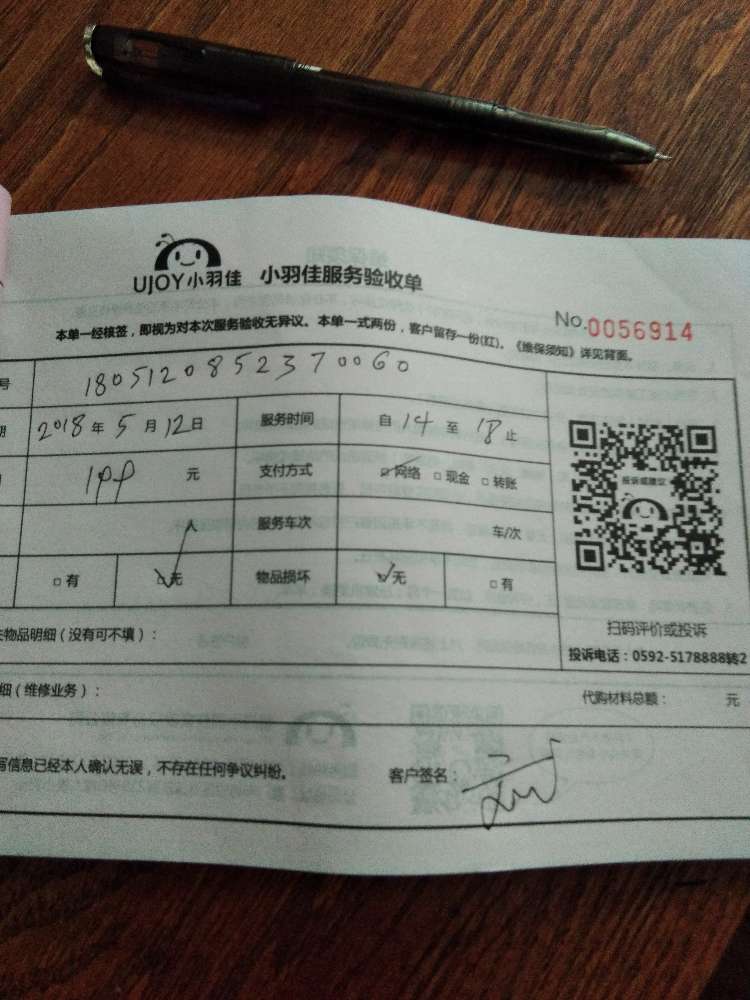 UJOY小羽佳 小羽佳服务验收单
No.0056914
本单一经核签，即视为对本次服务验收无异议。本单一式两份，客户留存一份(红)。《维保须知》详见背面。
号 1805120852370060
期 2018年5月12日 服务时间 自14至18止
199元 支付方式 ☑网络 □现金 □转账
服务车次 车/次
□有 ☑无 物品损坏 ☑无 □有
投诉或建议
扫码评价或投诉
投诉电话：0592-5178888转2
失物品明细（没有可不填）：
细（维修业务）： 代购材料总额： 元
写信息已经本人确认无误，不存在任何争议纠纷。 客户签名：